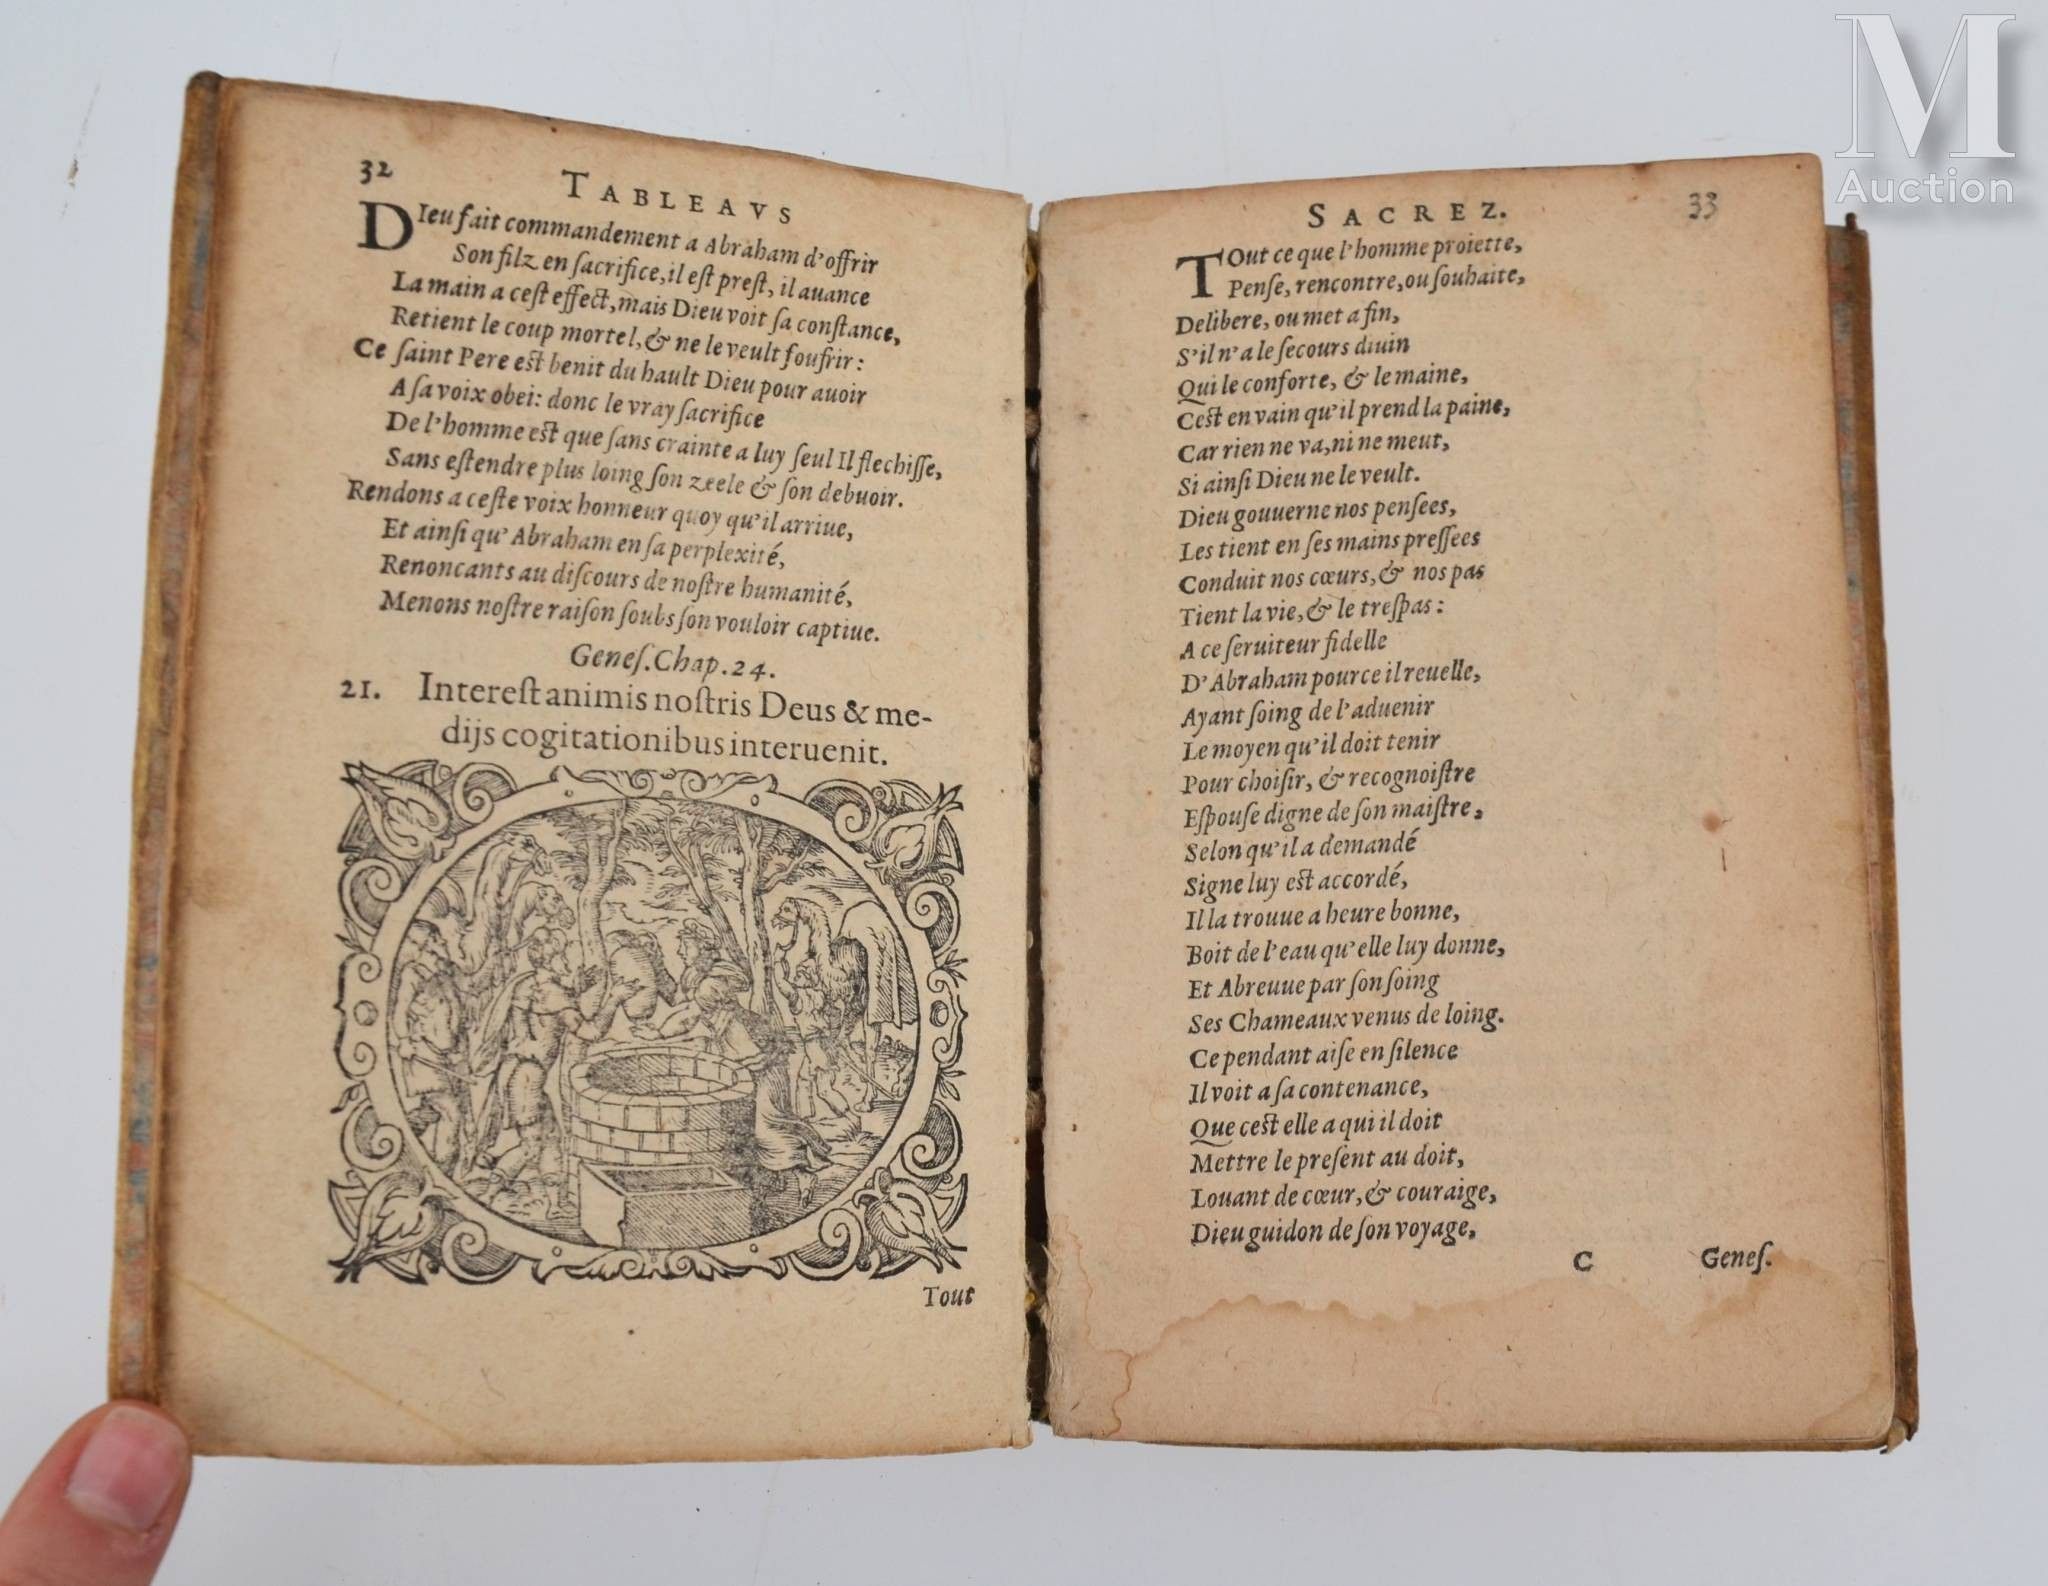 32
TABLEAVS
DIeu fait commandement a Abraham d'offrir
Son filz en ſacrifice, il eſt preſt, il auance
La main a ceſt effect, mais Dieu voit ſa conſtance,
Retient le coup mortel, & ne le veult ſoufrir:
Ce ſaint Pere est benit du hault Dieu pour auoir
A ſa voix obei: donc le vray ſacrifice
De l'homme est que ſans crainte a luy ſeul Il flechiſſe,
Sans eſtendre plus loing ſon zeele & ſon debuoir.
Rendons a ceſte voix honneur quoy qu'il arriue,
Et ainſi qu' Abraham en ſa perplexité,
Renoncants au diſcours de noſtre humanité,
Menons noſtre raiſon ſoubs ſon vouloir captiue.
Geneſ. Chap. 24.
21. Intereſt animis noſtris Deus & me-
dijs cogitationibus interuenit.
Tout
SACREZ.
33
TOut ce que l'homme proiette,
Penſe, rencontre, ou ſouhaite,
Delibere, ou met a fin,
S'il n'a le ſecours diuin
Qui le conforte, & le maine,
Cest en vain qu'il prend la paine,
Car rien ne va, ni ne meut,
Si ainſi Dieu ne le veult.
Dieu gouuerne nos penſees,
Les tient en ſes mains preſſees
Conduit nos cœurs, & nos pas
Tient la vie, & le treſpas:
A ce ſeruiteur fidelle
D'Abraham pource il reuelle,
Ayant ſoing de l'aduenir
Le moyen qu'il doit tenir
Pour choiſir, & recognoiſtre
Eſpouſe digne de ſon maiſtre,
Selon qu'il a demandé
Signe luy est accordé,
Il la trouue a heure bonne,
Boit de l'eau qu'elle luy donne,
Et Abreuue par ſon ſoing
Ses Chameaux venus de loing.
Ce pendant aiſe en ſilence
Il voit a ſa contenance,
Que cest elle a qui il doit
Mettre le preſent au doit,
Louant de cœur, & couraige,
Dieu guidon de ſon voyage,
C
Geneſ.
M
Auction